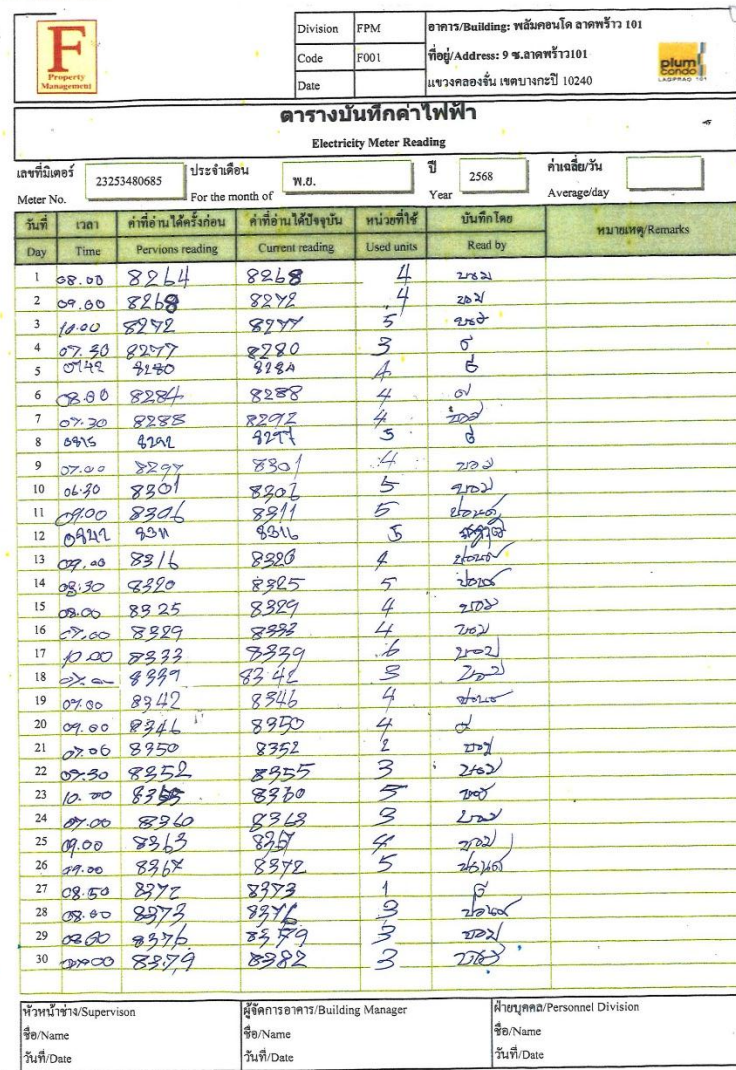 F
Property
Management
Division FPM
Code F001
Date
อาคาร/Building: พลัมคอนโด ลาดพร้าว 101
ที่อยู่/Address: 9 ซ.ลาดพร้าว101
แขวงคลองจั่น เขตบางกะปิ 10240
plum
condo
LADPRAO 101
ตารางบันทึกค่าไฟฟ้า
Electricity Meter Reading
เลขที่มิเตอร์ 23253480685 ประจำเดือน พ.ย. ปี 2568 ค่าเฉลี่ย/วัน
Meter No. For the month of Year Average/day
วันที่ เวลา ค่าที่อ่านได้ครั้งก่อน ค่าที่อ่านได้ปัจจุบัน หน่วยที่ใช้ บันทึกโดย หมายเหตุ/Remarks
Day Time Pervions reading Current reading Used units Read by
1 08.00 8264 8268 4
2 09.00 8268 8272 4
3 10.00 8272 8277 5
4 07.30 8277 8280 3
5 0742 8280 8284 4
6 08.00 8284 8288 4
7 07.30 8288 8292 4
8 0815 8292 8297 5
9 07.00 8297 8301 4
10 06.30 8301 8306 5
11 09.00 8306 8311 5
12 0842 8311 8316 5
13 09.00 8316 8320 4
14 08:30 8320 8325 5
15 08.00 8325 8329 4
16 07.00 8329 8333 4
17 10.00 8333 8339 6
18 8339 8342 3
19 07.00 8342 8346 4
20 09.00 8346 8350 4
21 07.00 8350 8352 2
22 07.30 8352 8355 3
23 10.00 8355 8360 5
24 07.00 8360 8363 3
25 09.00 8363 8367 4
26 8367 8372 5
27 08.50 8372 8373 1
28 08.00 8373 8376 3
29 8376 8379 3
30 8379 8382 3
หัวหน้าช่าง/Supervison ผู้จัดการอาคาร/Building Manager ฝ่ายบุคคล/Personnel Division
ชื่อ/Name ชื่อ/Name ชื่อ/Name
วันที่/Date วันที่/Date วันที่/Date